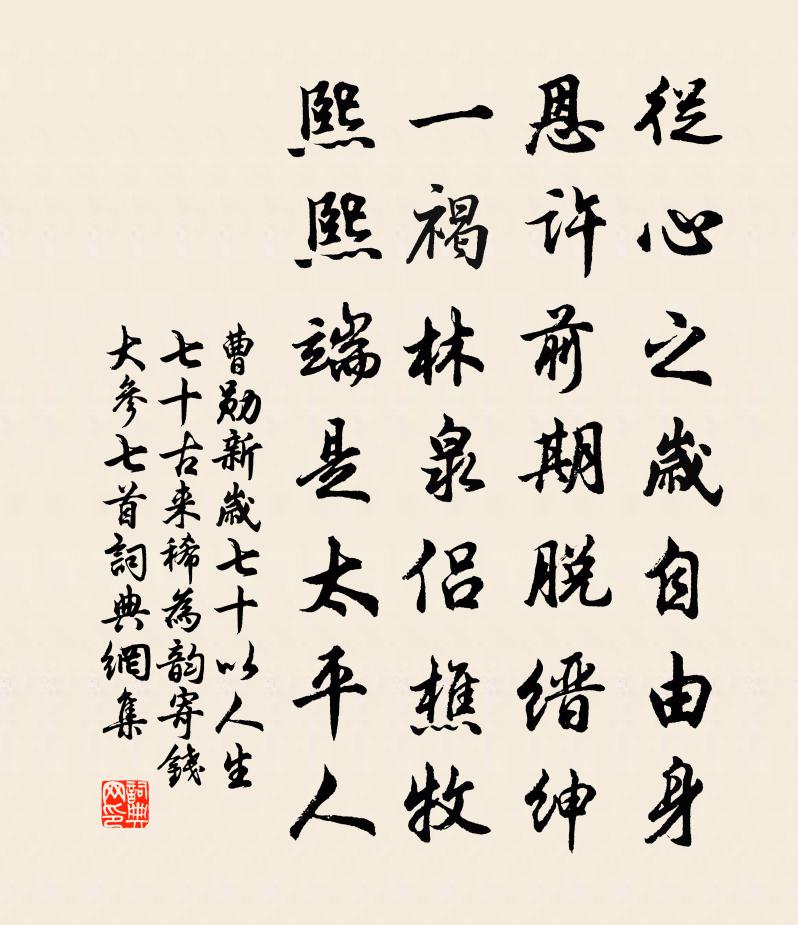 從心之歲自由身
恩許前期脫缙紳
一褐林泉侶樵牧
熙熙端是太平人
曹勛新歲七十以人生
七十古来稀為韵寄錢
大參七首詞典網集
詞典網印